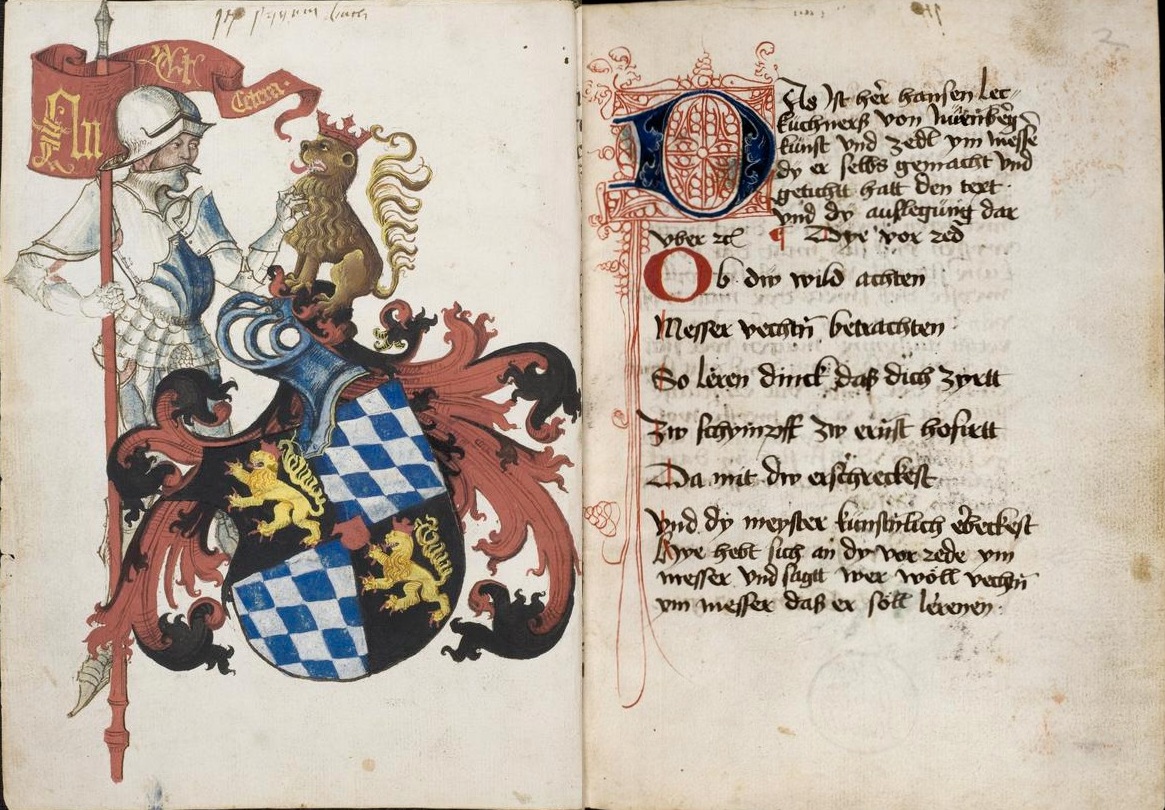 An
Et
Cetera
Das Jst her hansen lec-
kuchners von Nürenberg
kunst und zedl ym messer
dy er selbs gemacht und
geticht hatt den text
vnd dy auslegung dar
vber ꝛcͣ ¶ Dye vor red
Ob dw wild achten
Messer vechtn̄ betrachten
So leren dinck das dich zyrtt
zw schympff zw ernst hofirtt
Da mit dw erschreckest
vnd dy meyster kunstlich erbeckest
Hye hebt sich an dy vor rede ym
messer vnd sagtt wer wöll vechtn̄
ym messer das er söll lerenen